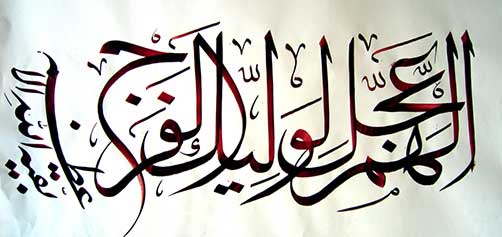 اللّهم عجّل لولیّک الفرج